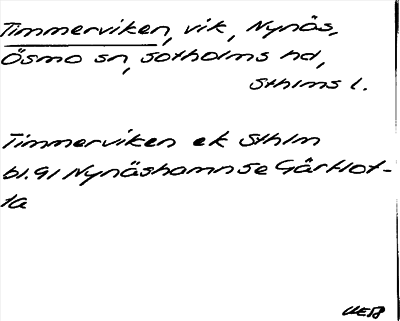 Timmerviken, vik, Nynäs,
Ösmo sn, Sotholms hd,
Sthlms l.
Timmerviken ek Sthlm
bl. 91 Nynäshamn Se Gårtlot-
ta